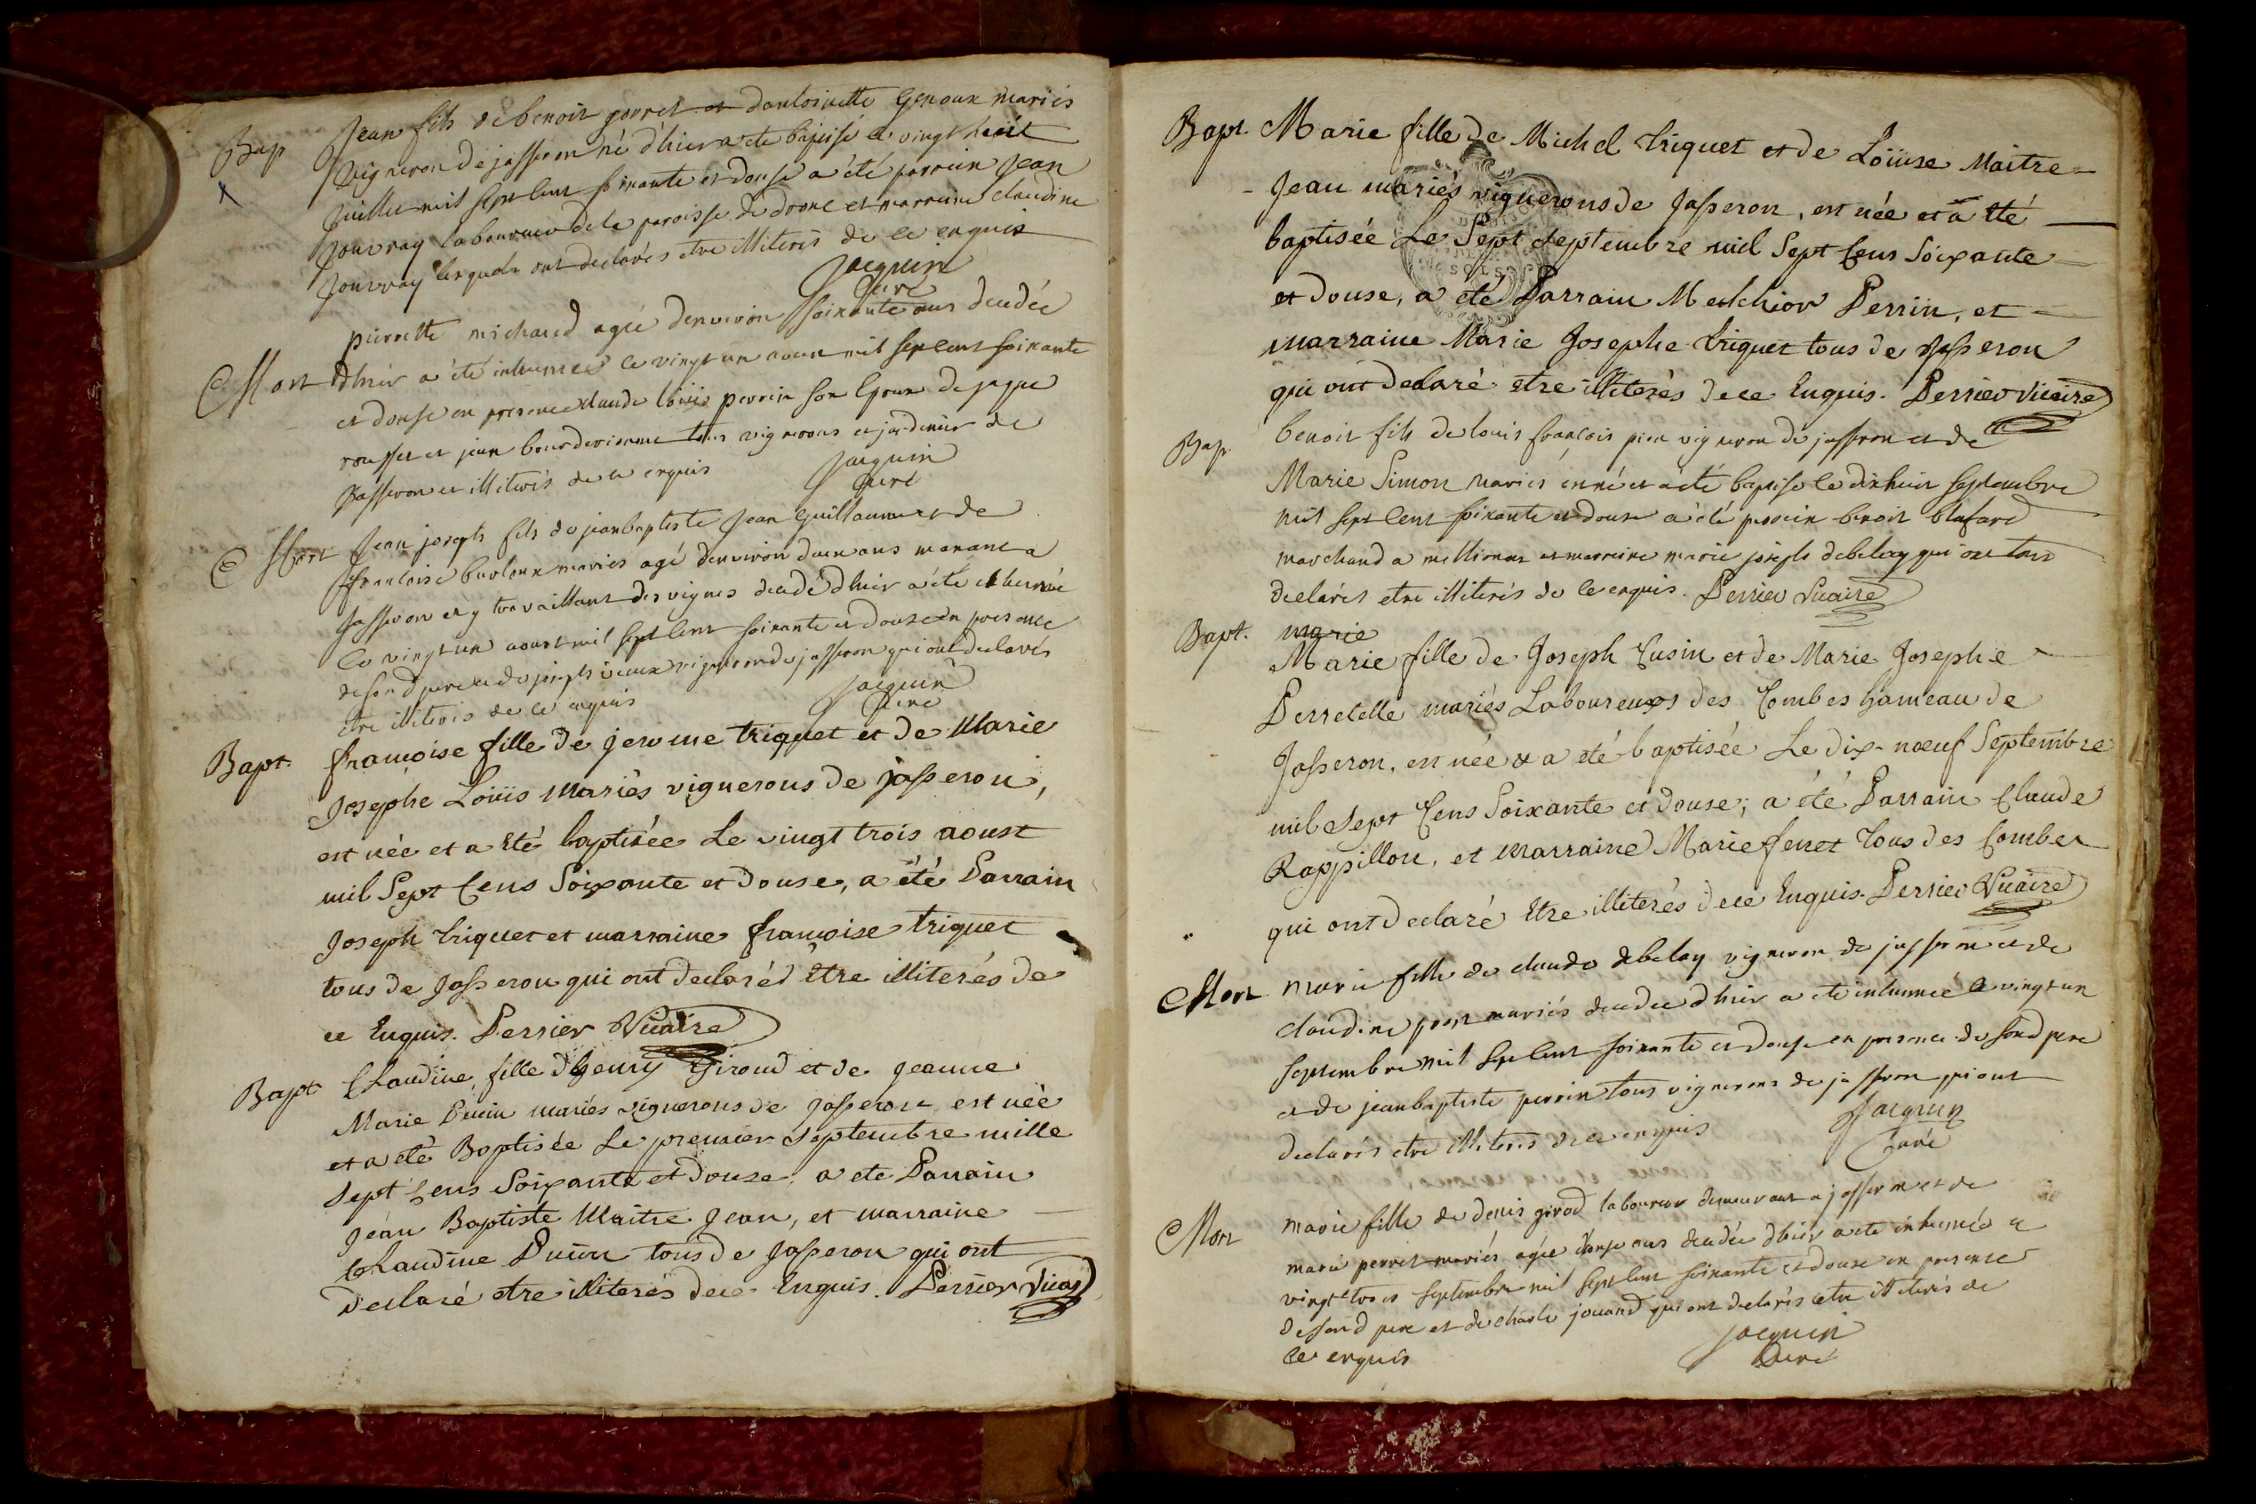 Bap Jean fils de benoit perret et dantoinette Genoux mariés
vigneron de jasseron né d'hier a ete baptisé le vingt huit
Juillet mil sept cent soixante et douse a été parrein Jean
Jouvray laboureur de la paroisse de drom et marraine claudine
Jouvray lesquels ont declarés etre illiterés de ce enquis
Jacquin
Curé
Mort pierrette michaud agée denviron soixante ans decedée
dhier a été inhumée le vingt un aoust mil sept cent soixante
et douse en presence claude loüis perrin son Epoux de
rousset et jean tous vignerons et jardinier de
Jasseron et illiterés de ce enquis
Jacquin
Curé
Mort Jean joseph fils de jean baptiste Jean Guillaume et de
francoise burloux mariés agé denviron douse ans manant a
Jasseron et y travaillant des vignes decedé dhier a été inhumé
le vingt un aoust mil sept cent soixante et douse en presence
de son d pere et de joseph vieux vigneron de jasseron qui ont declarés
etre illiterés de ce enquis
Jacquin
Curé
Bapt. françoise fille de jerome triquet et de Marie
Josephe Loüis mariés vignerons de jasseron,
est née et a été baptisée Le vingt trois aoust
mil Sept Cens Soixante et douse, a été Parrain
Joseph triquet et marraine françoise triquet
tous de Jasseron qui ont declaré Etre illiterés de
ce Enquis. Perrier Vicaire
Bapt Claudine, fille d'henry Giroud et de jeanne
Marie mariés vignerons de Jasseron est née
et a été Baptisée Le premier septembre mille
sept Cens Soixante et douse, a ete Parrain
Jean Baptiste Maitre Jean, et marraine
Claudine tous de Jasseron qui ont
declaré etre illiterés de ce Enquis. Perrier Vicaire
Bapt. Marie fille de Michel triquet et de Loüise Maitre=
-Jean mariés vignerons de Jasseron, est née et a été
baptisée Le Sept septembre mil Sept Cens Soixante
et Douse, a été Parrain Melchior Perrin, et
marraine Marie Josephe triquet tous de Jasseron
qui ont declaré etre illiterés de ce Enquis. Perrier Vicaire
Bap. benoit fils de louis françois pion vigneron de jasseron et de
Marie Simon mariés est né et a été baptisé le dixhuit septembre
mil sept Cent soixante et douse a été parrein benoit blafard
marchand a meillonas et marreine marie josephe debelay qui ont tous
declarés etre illiterés de ce enquis. Perrier Vicaire
Bapt. marie
Marie fille de Joseph Cusin et de Marie Josephe
Perretelle mariés Laboureurs des Combes hameau de
Jasseron, est née & a été baptisée Le dix-noeuf Septembre
mil Sept Cens Soixante et douse; a été Parrain Claude
Rappillon, et marraine Marie ferret tous des Combes
qui ont declaré Etre illiterés de ce Enquis. Perrier Vicaire
Mort Marie fille de claude debelay vigneron de jasseron et de
claudine mariés decedée dhier a été inhumée le vingt un
septembre mil sept cent soixante et douse en presence de son d pere
et de jean baptiste perrin tous vignerons de jasseron qui ont
declarés etre illiterés de ce enquis
Jacquin
Curé
Mort Marie fille de denis girod laboureur demeurant a jasseron et de
marie perret mariés agée donse ans decedée dhier a été inhumée le
vingt trois septembre mil sept cent soixante et douse en presence
de son d pere et de charle jouand qui ont declarés etre illiterés de
ce enquis
Jacquin
Curé